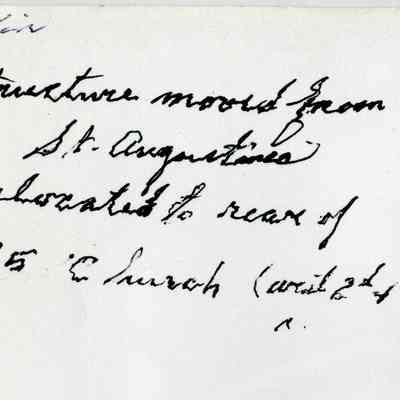 tructure moved from
St. Augustine
elocated to rear of
5 E Church (